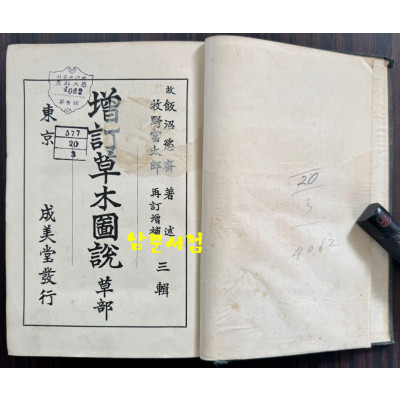 故
飯沼慾齋 著述
牧野富太郎 再訂增補
三輯
增訂草木圖說 草部
東京
成美堂發行
4062
577
20
3
남문서점
20
3
4062